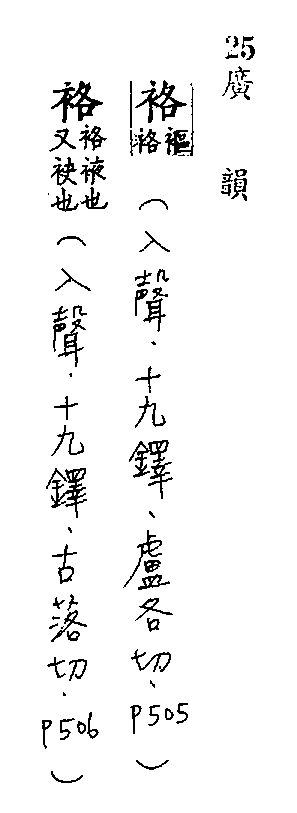 25廣韻
袼䙔袼（入聲．十九鐸、盧各切、P505）
袼袼䘸也又袂也（入聲．十九鐸、古落切．P506）